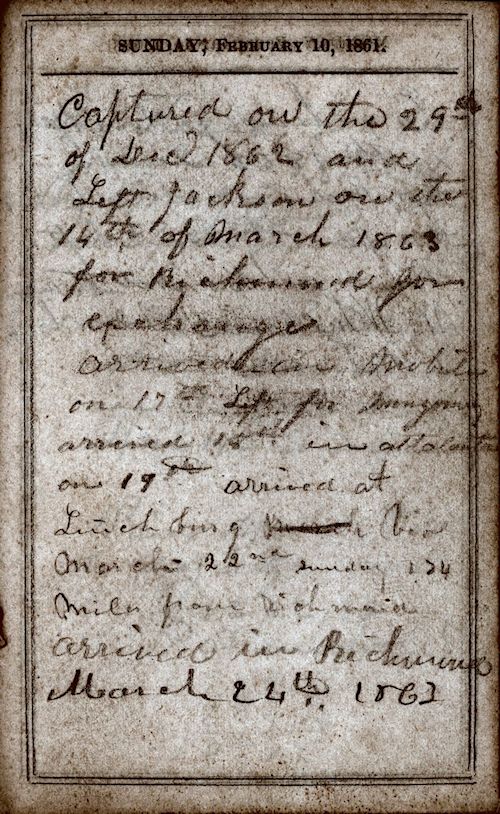 SUNDAY, FEBRUARY 10, 1861.
Captured on the 29th
of Decd 1862 and
Left Jackson on the
14th of March 1863
for Richmond for
exchange
arrived in Mobile
on 17th Left for
arrived 18th in Atlanta
on 19th arrived at
Linchburg Via
March 22nd sunday 134
Miles from Richmond
arrived in Richmond
March 24th. 1863